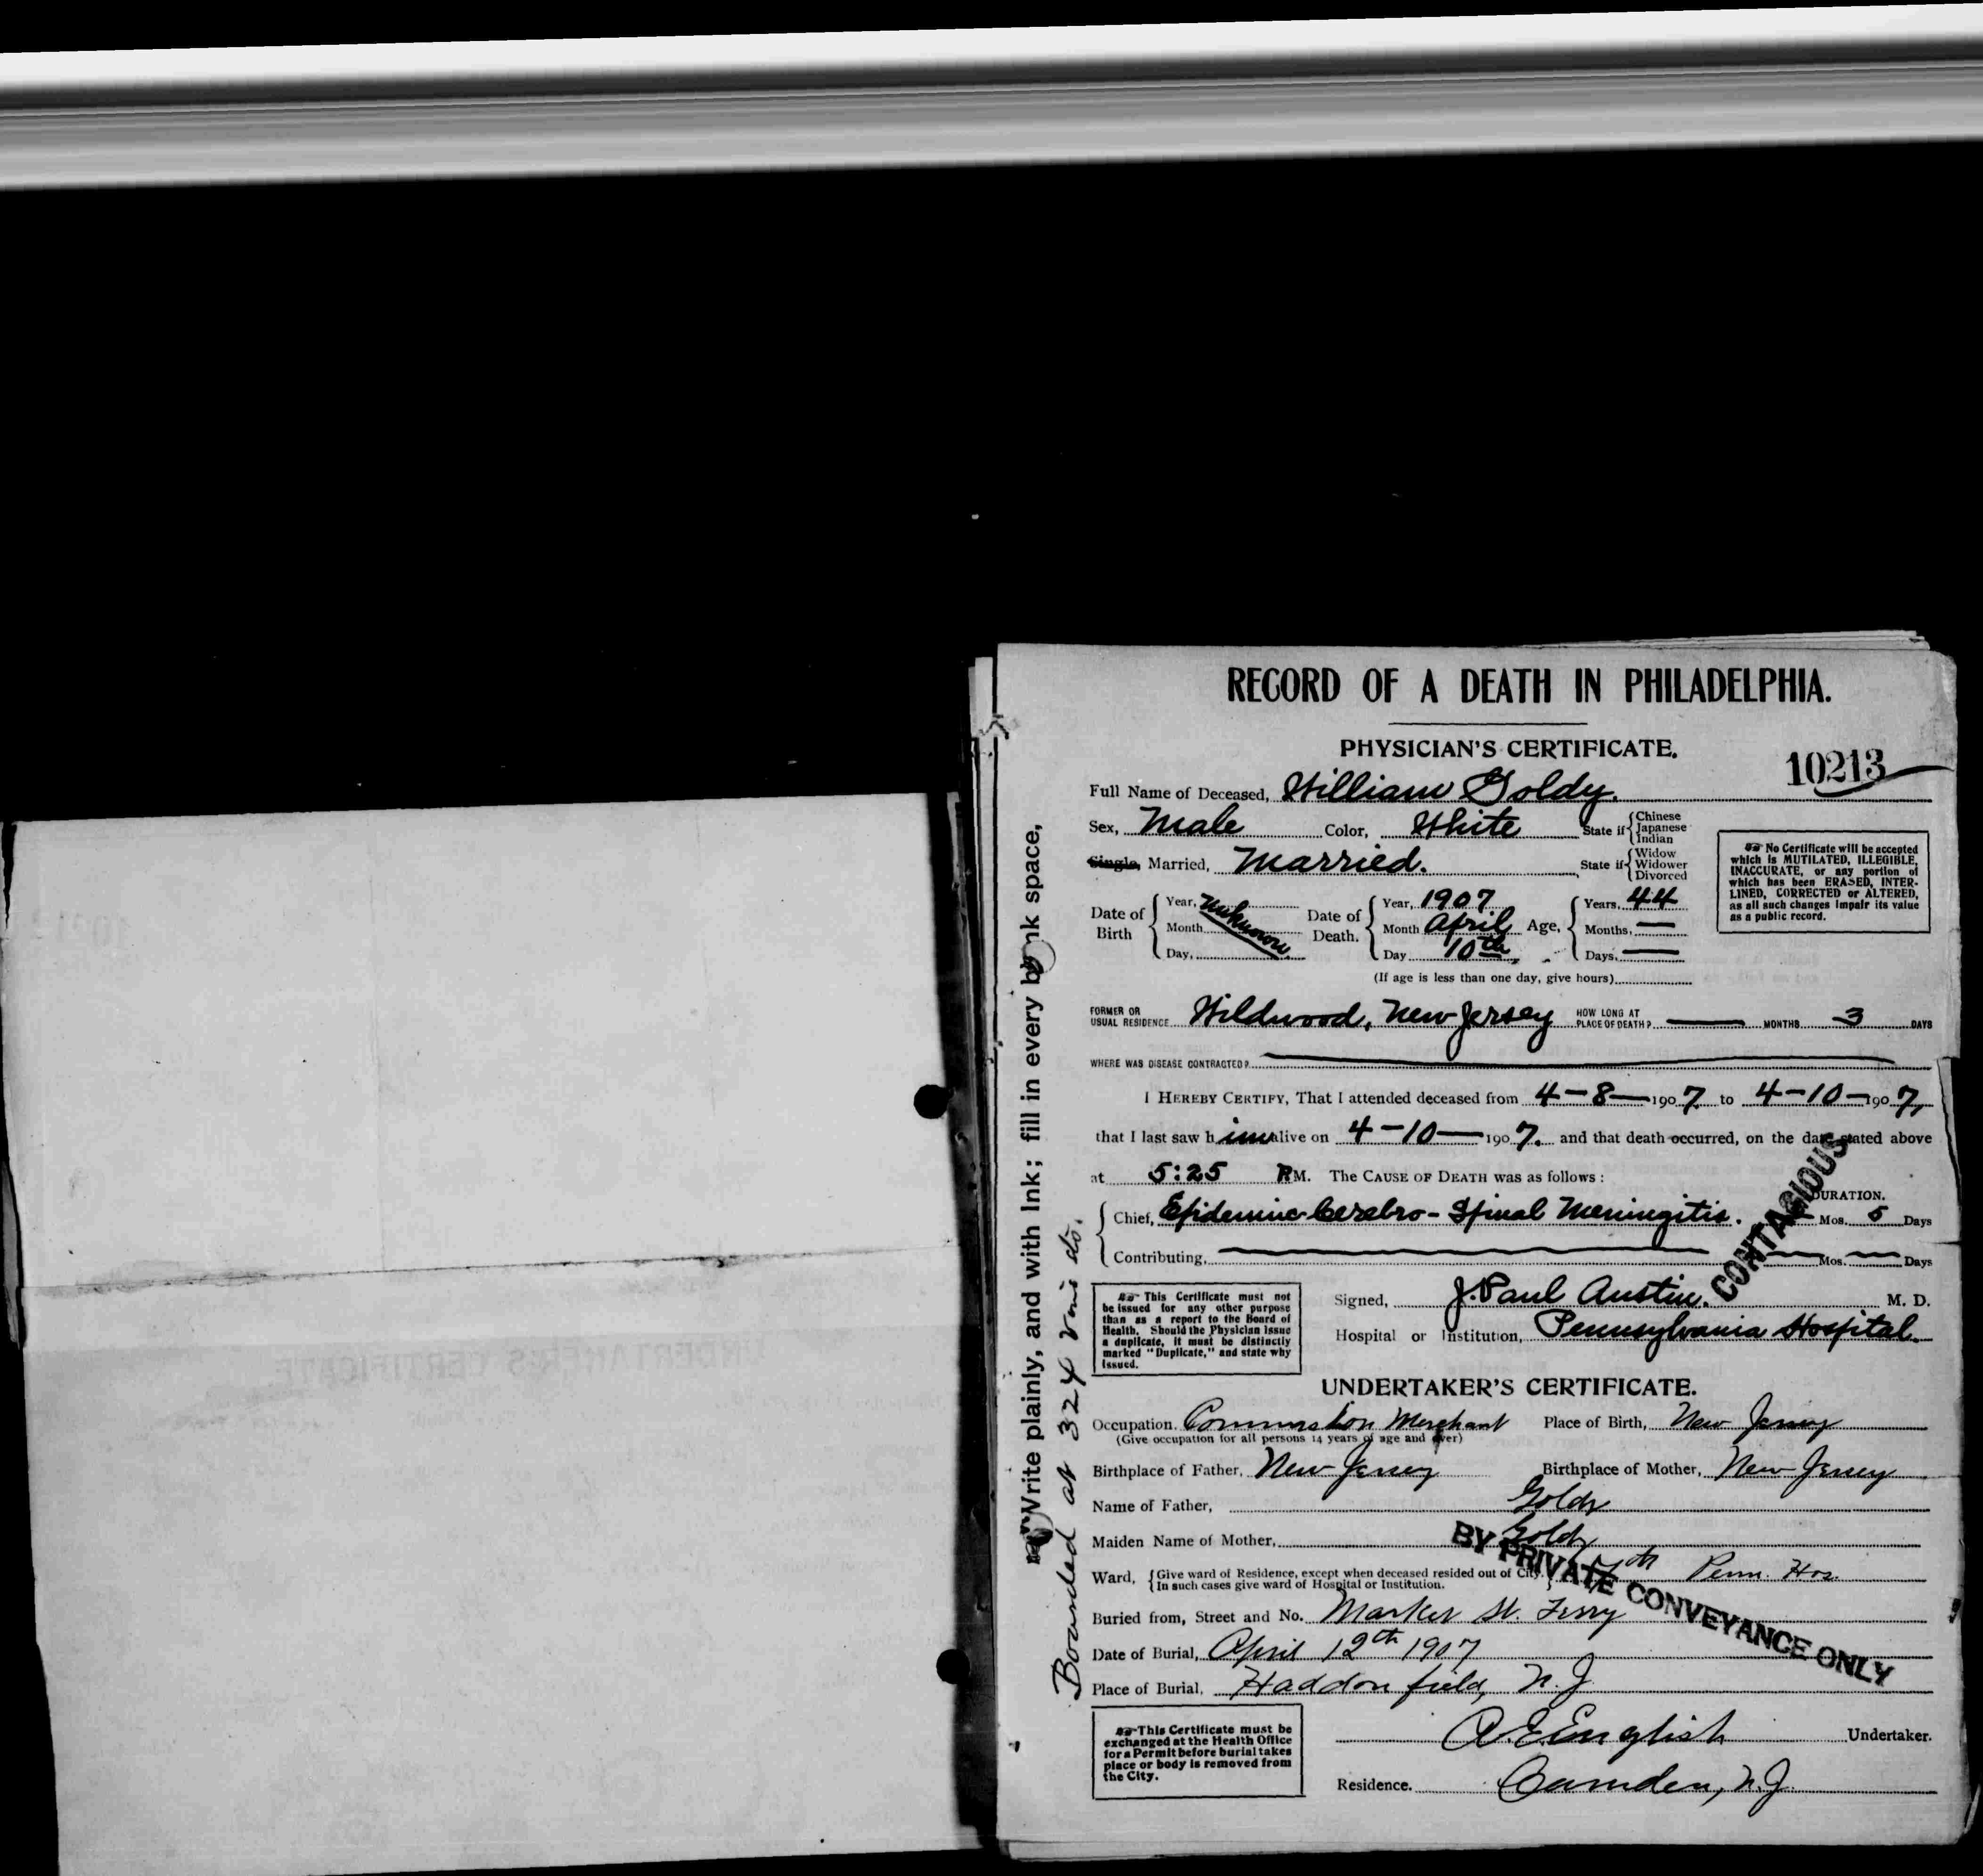 RECORD OF A DEATH IN PHILADELPHIA.
PHYSICIAN'S CERTIFICATE.
10213
Full Name of Deceased, William Goldy.
Sex, Male Color, White State if { Chinese Japanese Indian
Single, Married, Married. State if { Widow Widower Divorced
No Certificate will be accepted
which is MUTILATED, ILLEGIBLE,
INACCURATE, or any portion of
which has been ERASED, INTER-
LINED, CORRECTED or ALTERED,
as all such changes impair its value
as a public record.
Date of Birth { Year, Unknown Month Day,
Date of Death. { Year, 1907 Month April Day 10th
Age, { Years, 44 Months, — Days, —
(If age is less than one day, give hours)
FORMER OR USUAL RESIDENCE Wildwood, New Jersey HOW LONG AT PLACE OF DEATH? — MONTHS 3 DAYS
WHERE WAS DISEASE CONTRACTED?
I HEREBY CERTIFY, That I attended deceased from 4-8-1907 to 4-10-1907,
that I last saw him alive on 4-10-1907. and that death occurred, on the date stated above
at 5:25 P.M. The CAUSE OF DEATH was as follows:
DURATION.
Chief, Epidemic Cerebro-Spinal Meningitis. — Mos. 5 Days
Contributing, — Mos. — Days
CONTAGIOUS
This Certificate must not
be issued for any other purpose
than as a report to the Board of
Health. Should the Physician issue
a duplicate, it must be distinctly
marked "Duplicate," and state why
issued.
Signed, J. Paul Austin. M. D.
Hospital or Institution, Pennsylvania Hospital.
UNDERTAKER'S CERTIFICATE.
Occupation. Commission Merchant Place of Birth, New Jersey
(Give occupation for all persons 14 years of age and over)
Birthplace of Father, New Jersey Birthplace of Mother, New Jersey
Name of Father, Goldy
Maiden Name of Mother, Goldy
Ward, { Give ward of Residence, except when deceased resided out of City. In such cases give ward of Hospital or Institution. } Penn. Hos.
BY PRIVATE CONVEYANCE ONLY
Buried from, Street and No. Market St. Ferry
Date of Burial, April 12th 1907
Place of Burial, Haddonfield, N.J.
This Certificate must be
exchanged at the Health Office
for a Permit before burial takes
place or body is removed from
the City.
A.E. English Undertaker.
Residence. Camden, N.J.
Write plainly, and with Ink; fill in every blank space,
Bounded at 324
UNDERTAKER'S CERTIFICATE